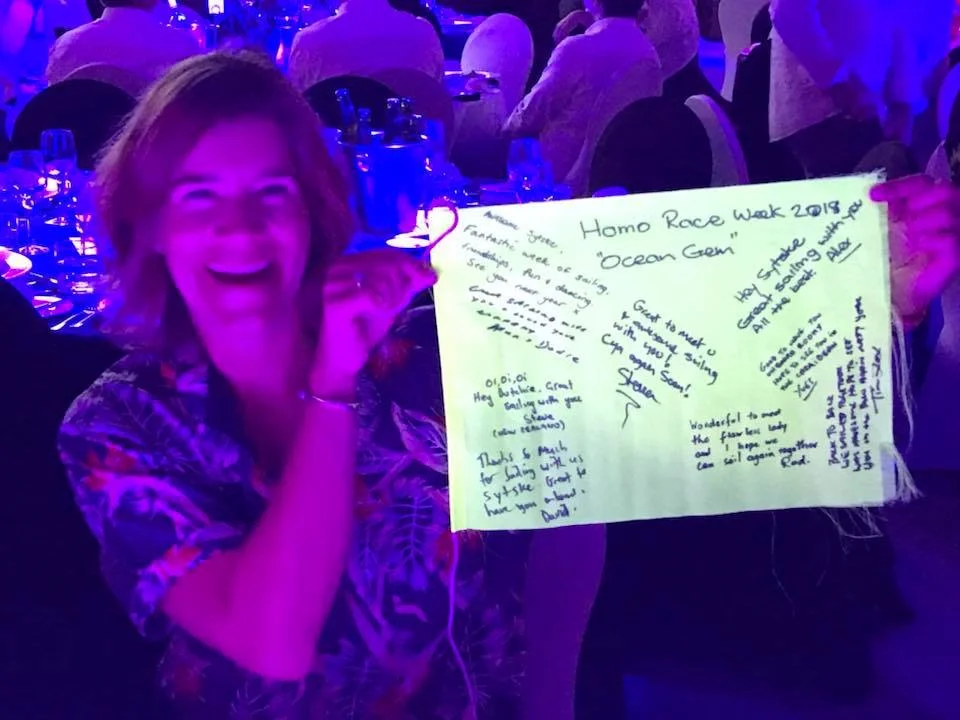 Homo Race Week 2018
"Ocean Gem"
Awesome Sytske,
Fantastic week of sailing,
friendships, fun & dancing.
See you next year x
Great sailing with
Oi, Oi, Oi
Hey Dutchie. Great
Sailing with you
Steve
(NEW ZEALAND)
Thanks so much
for sailing with us
Sytske Great to
have you onboard!
David.
Great to meet u
& awesome sailing
with you!
Cya again Soon!
Steven
Hey Sytske
Great sailing with you
All the best Alex
GOOD TO HAVE YOU
HOPE TO SEE YOU IN
Yves
Wonderful to meet
the flawless lady
and I hope we
can sail again together
Rod.
BACK TO BACK
WE SAILED TOGETHER
WAS AWESOME HOPE TO SEE
YOU IN THE AGAIN NEXT YEAR